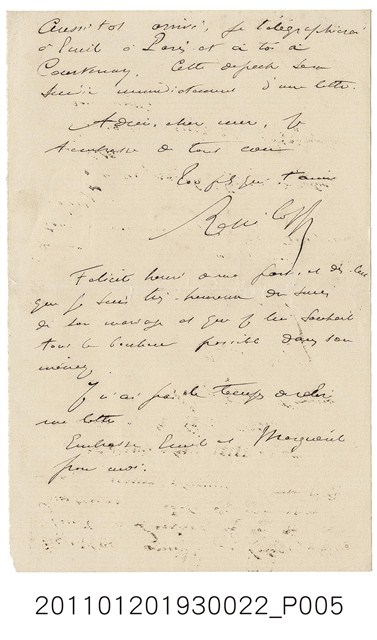 Aussitot arrivé, je télégraphierai
à Emile à Paris et à toi à
Courtenay. Cette depech sera
suivie immédiatement d'une lettre.
Adieu, cher mere, je
t'embrasse de tout cœur
Ton fils qui t'aime
Felicite henri à ma fois et dis lui
que je suis très heureux de
de son mariage et que je lui souhait
tout le bonheur possible dans son
ménage
Je n'ai pas le temps de relir
ma lettre.
Embrasse Emile et Marguerite
pour moi.
201101201930022_P005